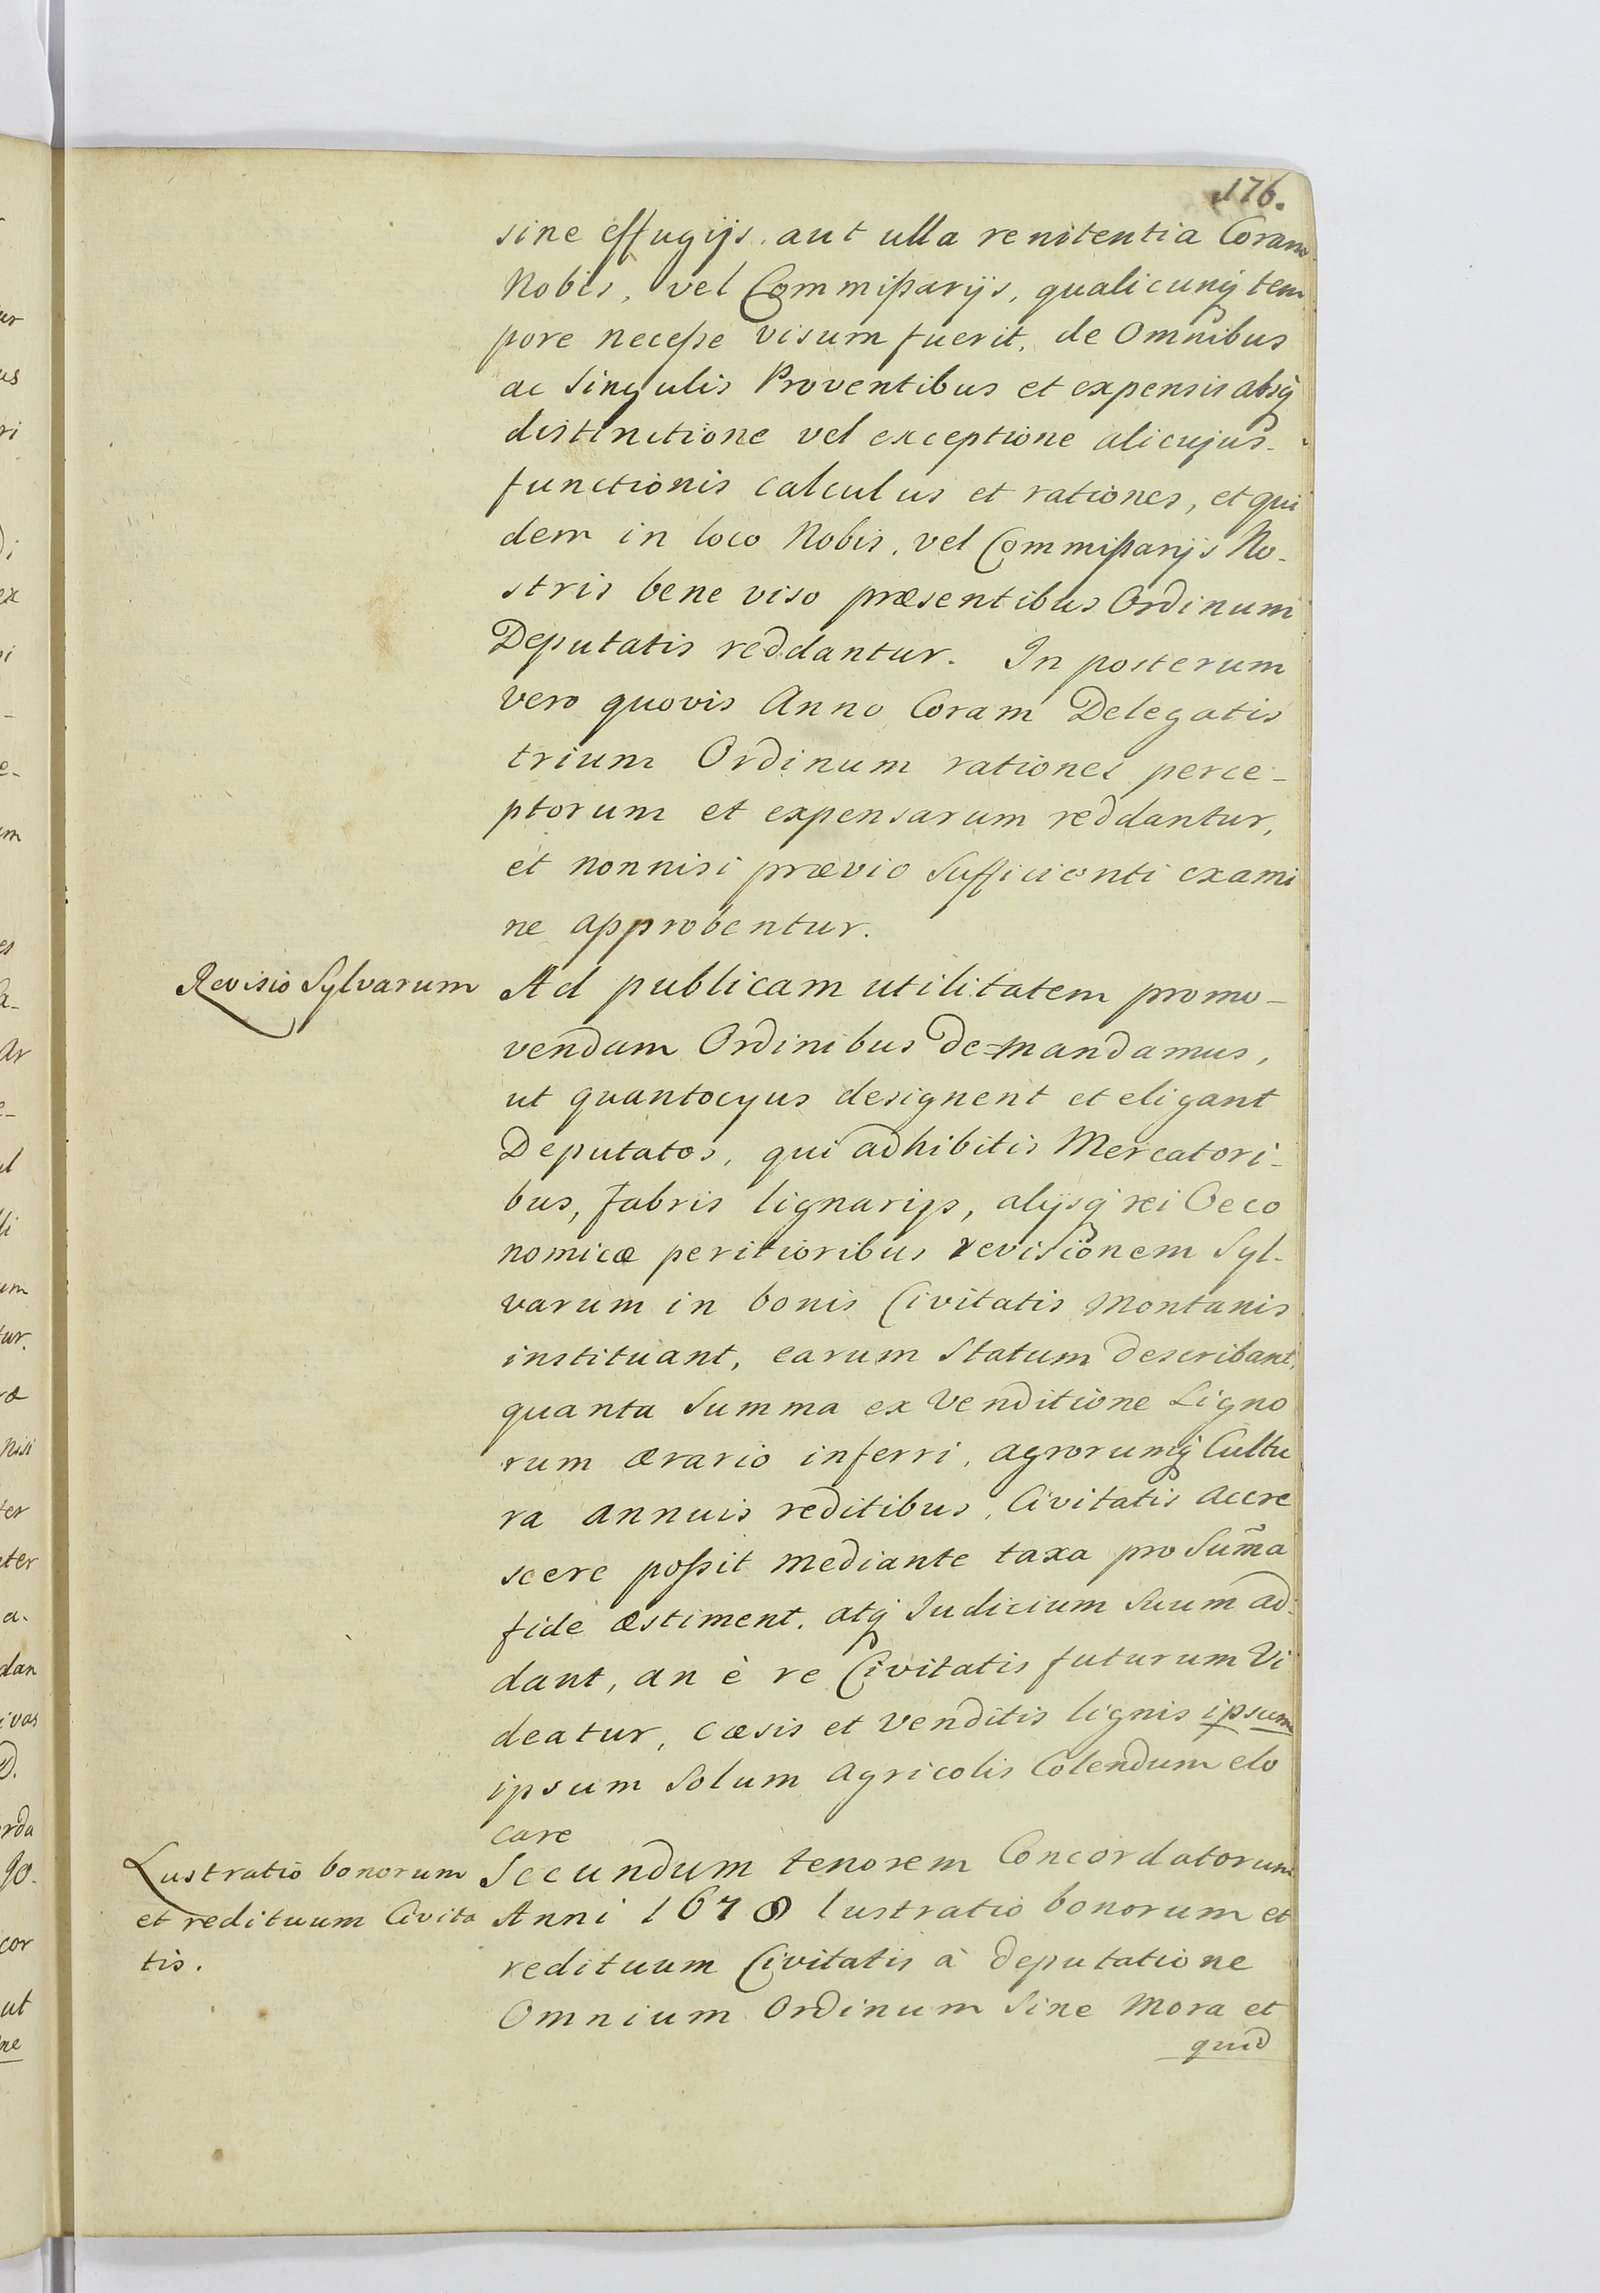 176.
sine effugijs, aut ulla renitentia Coram
Nobis, vel Commißarijs, qualicunq tem
pore neceße visum fuerit, de Omnibus
ac Singulis Proventibus et expensis absq
distinctione vel exceptione alicujus
functionis calculus et rationes, et qui
dem in loco Nobis, vel Commißarijs No-
stris bene viso præsentibus Ordinum
Deputatis reddantur. In posterum
vero quovis Anno Coram Delegatis
trium Ordinum rationes perce-
ptorum et expensarum reddantur,
et nonnisi prævio Sufficienti exami
ne approbentur.
Revisio Sylvarum
Ad publicam utilitatem promo-
vendam Ordinibus de=mandamus,
ut quantocyus designent et eligant
Deputatos, qui adhibitis Mercatori-
bus, fabris lignarijs, alijsq rei Oeco
nomicæ peritioribus revisionem Syl-
varum in bonis Civitatis Montanis
instituant, earum Statum describant,
quanta Summa ex Venditione Ligno
rum ærario inferri, agrorumq Cultu
ra annuis reditibus, Civitatis accre
scere poßit mediante taxa pro Sum̃a
fide æstiment, atq Judicium Suum ad-
dant, an è re Civitatis futurum Vi
deatur, cæsis et venditis lignis ipsum
ipsum Solum Agricolis Colendum elo
care
Lustratio bonorum
et redituum Civita
tis.
Secundum tenorem Concordatorum
Anni 1678 lustratio bonorum et
redituum Civitatis à deputatione
Omnium Ordinum Sine Mora et
quid